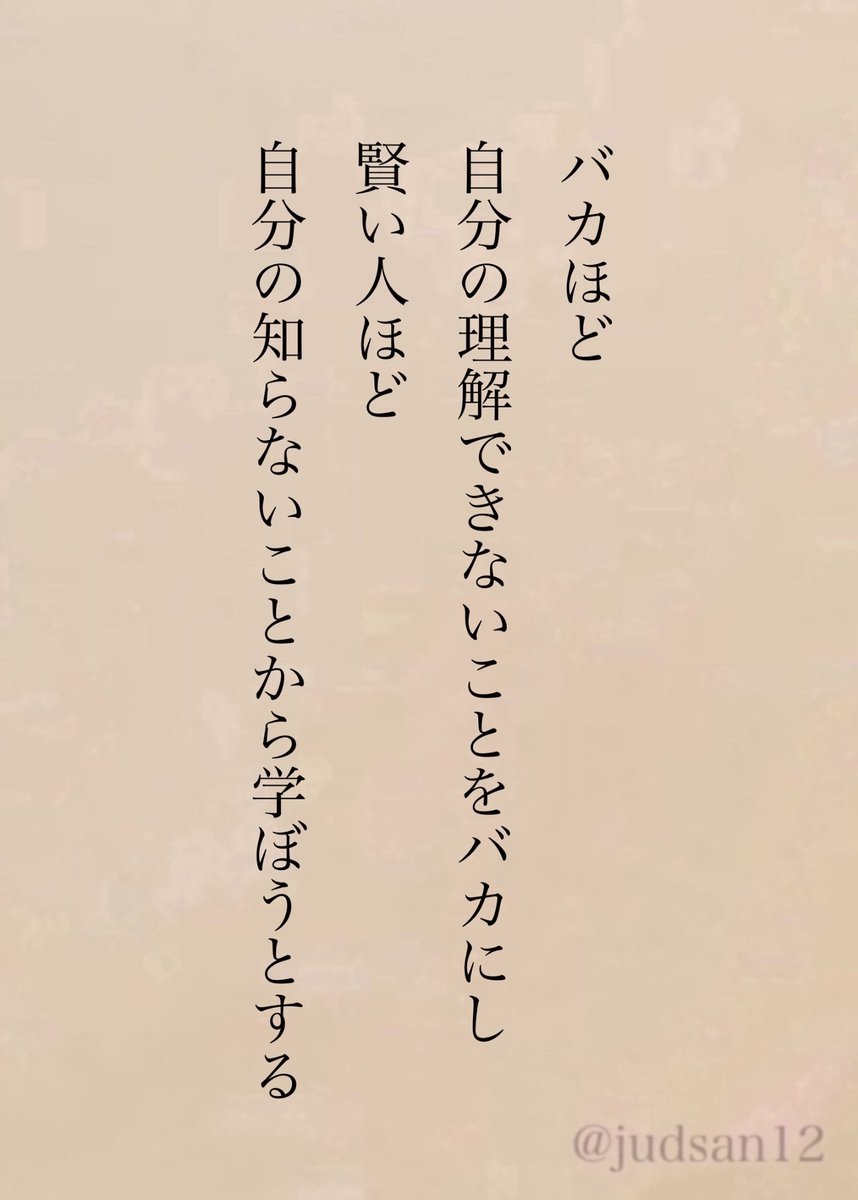 バカほど
自分の理解できないことをバカにし
賢い人ほど
自分の知らないことから学ぼうとする
@judsan12